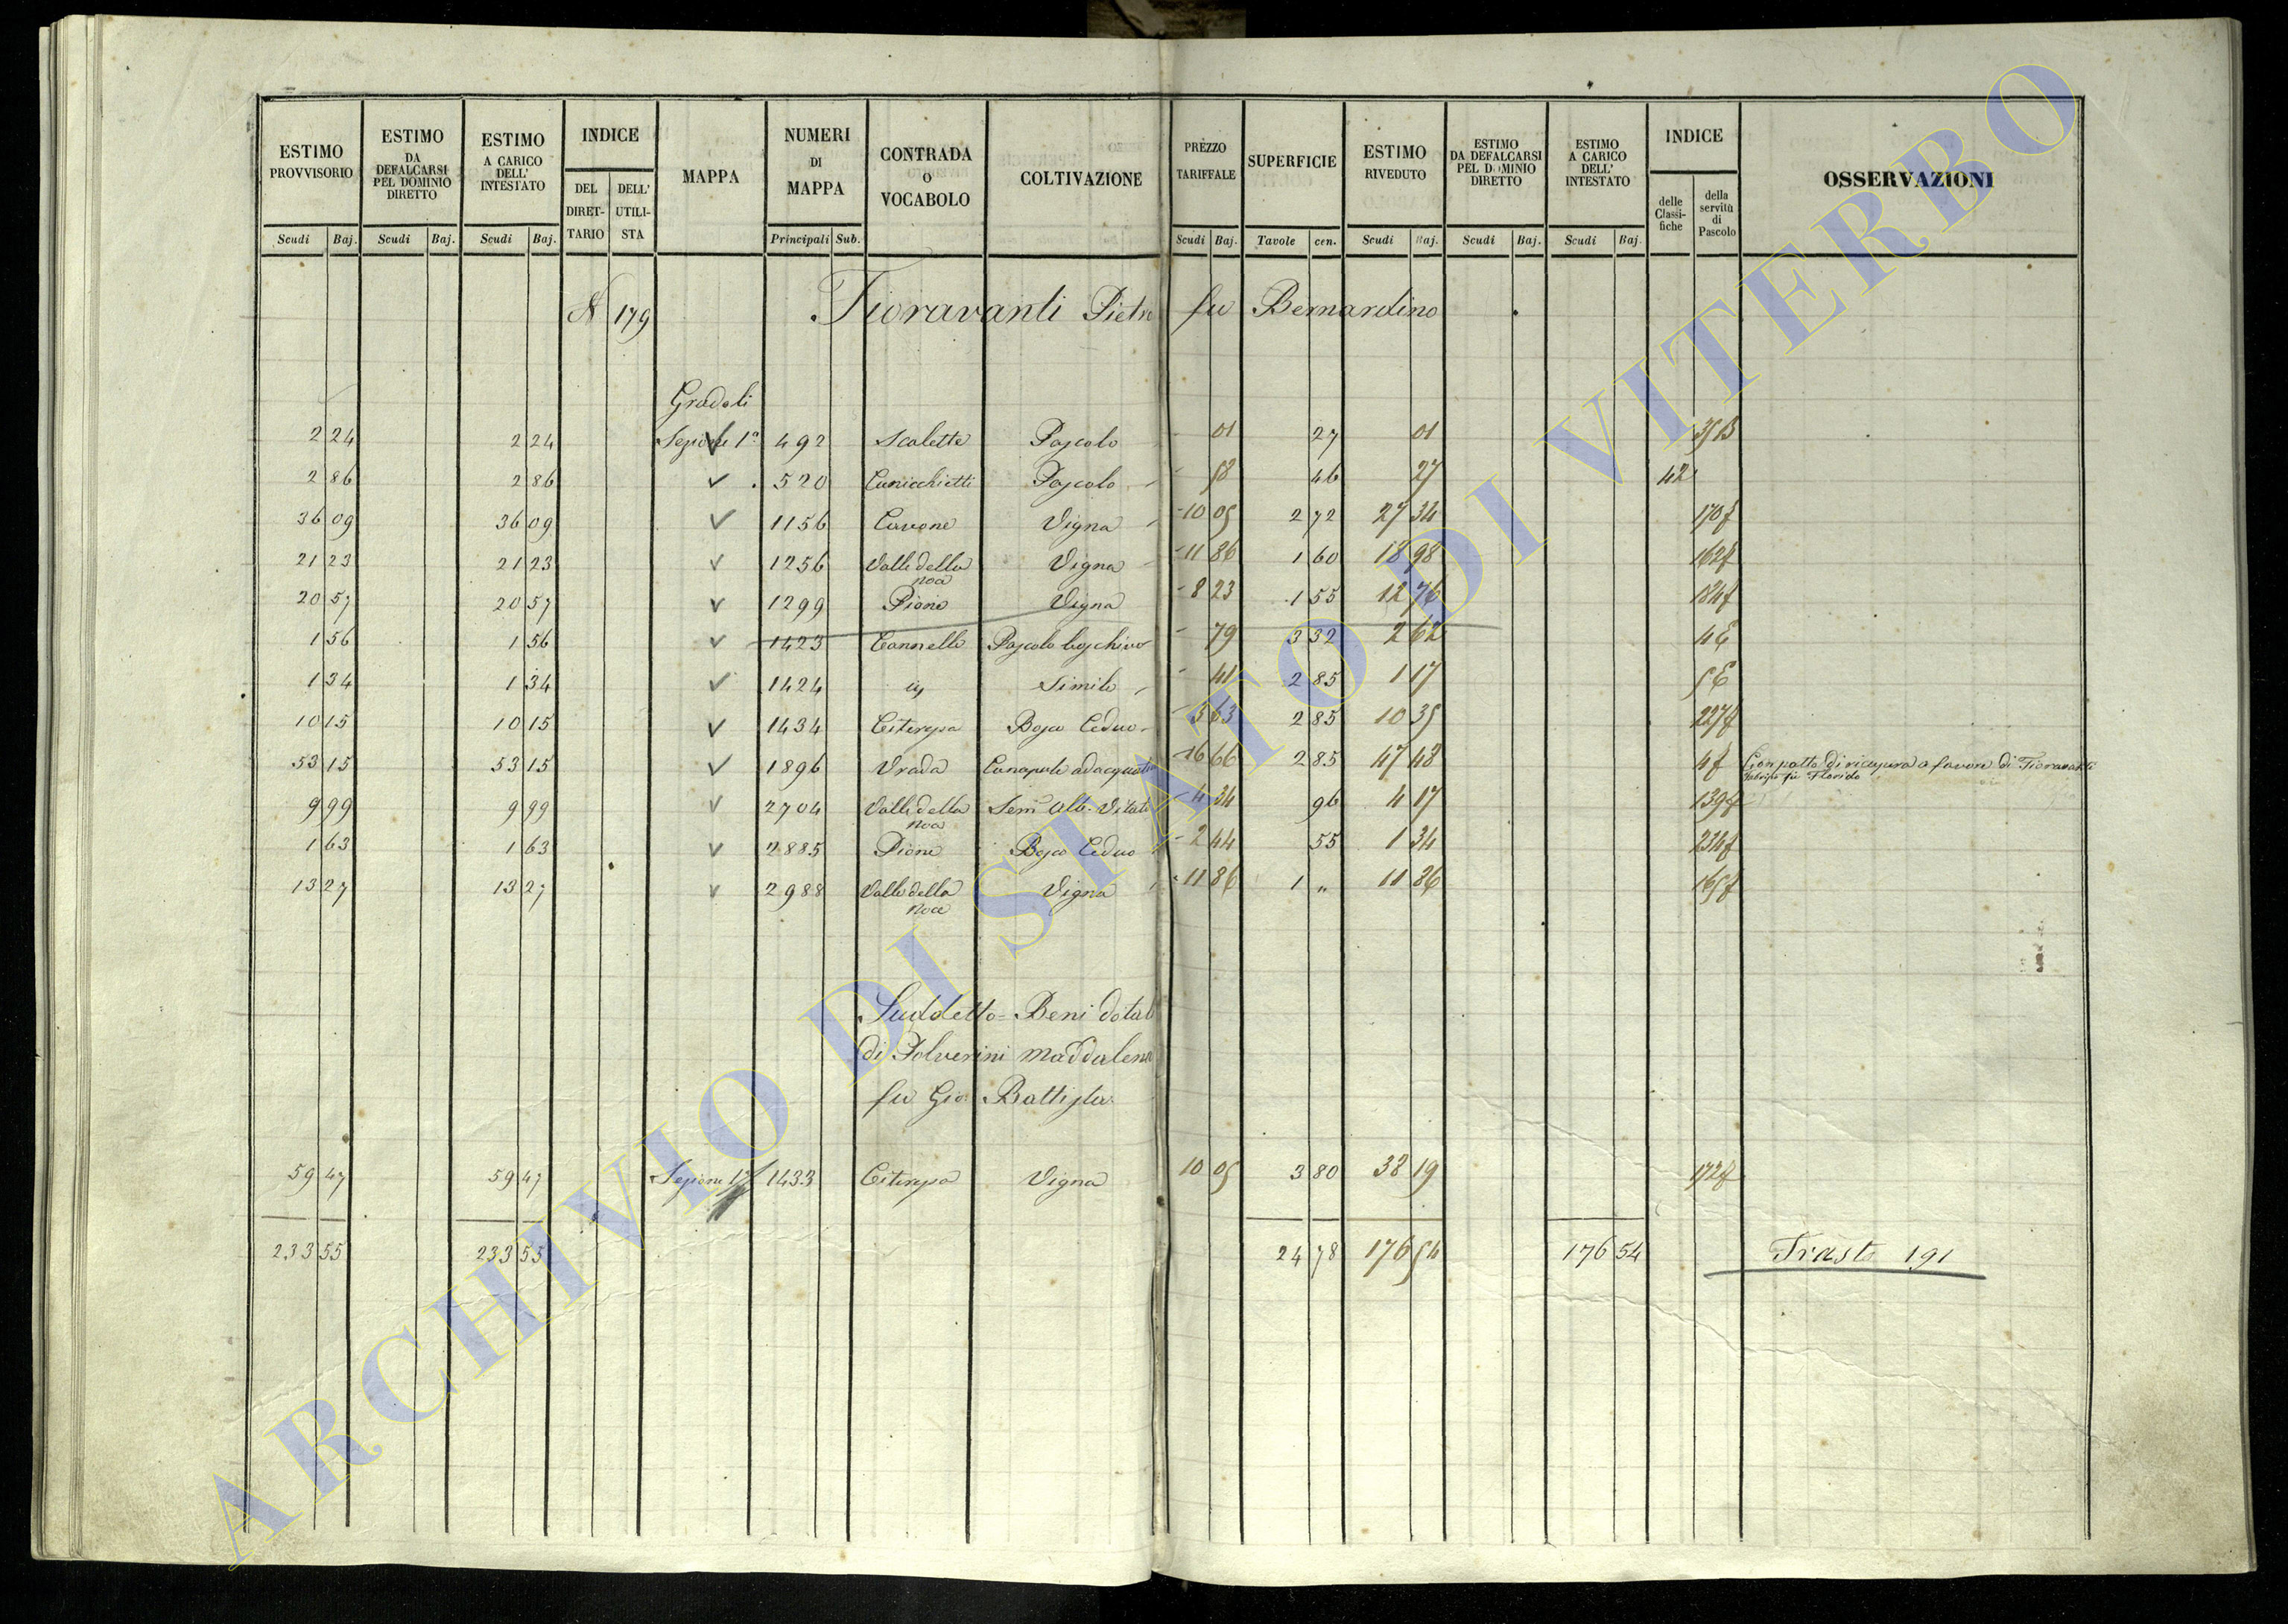 ESTIMO PROVVISORIO Scudi Baj.
ESTIMO DA DEFALCARSI PEL DOMINIO DIRETTO Scudi Baj.
ESTIMO A CARICO DELL' INTESTATO Scudi Baj.
INDICE DEL DIRET- TARIO DELL' UTILI- STA
MAPPA
NUMERI DI MAPPA Principali Sub.
CONTRADA O VOCABOLO
COLTIVAZIONE
PREZZO TARIFFALE Scudi Baj.
SUPERFICIE Tavole cen.
ESTIMO RIVEDUTO Scudi Baj.
ESTIMO DA DEFALCARSI PEL DOMINIO DIRETTO Scudi Baj.
ESTIMO A CARICO DELL' INTESTATO Scudi Baj.
INDICE delle Classi- fiche della servitù di Pascolo
OSSERVAZIONI
N 179 Fioravanti Pietro fu Bernardino
Gradoli
2 24 2 24 Sezione 1ª 492 Scalette Pascolo 01 27 01 35B
2 86 2 86 520 Cunicchietti Pascolo 58 46 27 42
36 09 36 09 1156 Cavone Vigna 10 05 2 72 27 34 170f
21 23 21 23 1256 Valle della Noce Vigna 11 86 1 60 18 98 162f
20 57 20 57 1299 Pione Vigna 8 23 1 55 12 76 184f
1 56 1 56 1423 Cannelle Pascolo boschivo 79 3 32 2 62 4E
1 34 1 34 1424 id Simile 41 2 85 1 17 5E
10 15 10 15 1434 Citerspa Bosco Ceduo 3 63 2 85 10 35 227f
53 15 53 15 1896 Vrada Canapule adacquativo 16 66 2 85 47 48 4f Con patto di ricupera a favore di Fioravanti
fu Florido
9 99 9 99 2704 Valle della Noce Semvo Alb. Vitato 4 34 96 4 17 139f
1 63 1 63 2885 Pione Bosco Ceduo 2 44 55 1 34 234f
13 27 13 27 2988 Valle della Noce Vigna 11 86 1 " 11 86 165f
Suddetto = Beni dotali
di Polverini Maddalena
fu Gio: Battista
59 47 59 47 Sezione 1ª 1433 Citerspa Vigna 10 05 3 80 38 19 172f
233 55 233 55 24 78 176 54 176 54 Trasto 191
ARCHIVIO DI STATO DI VITERBO